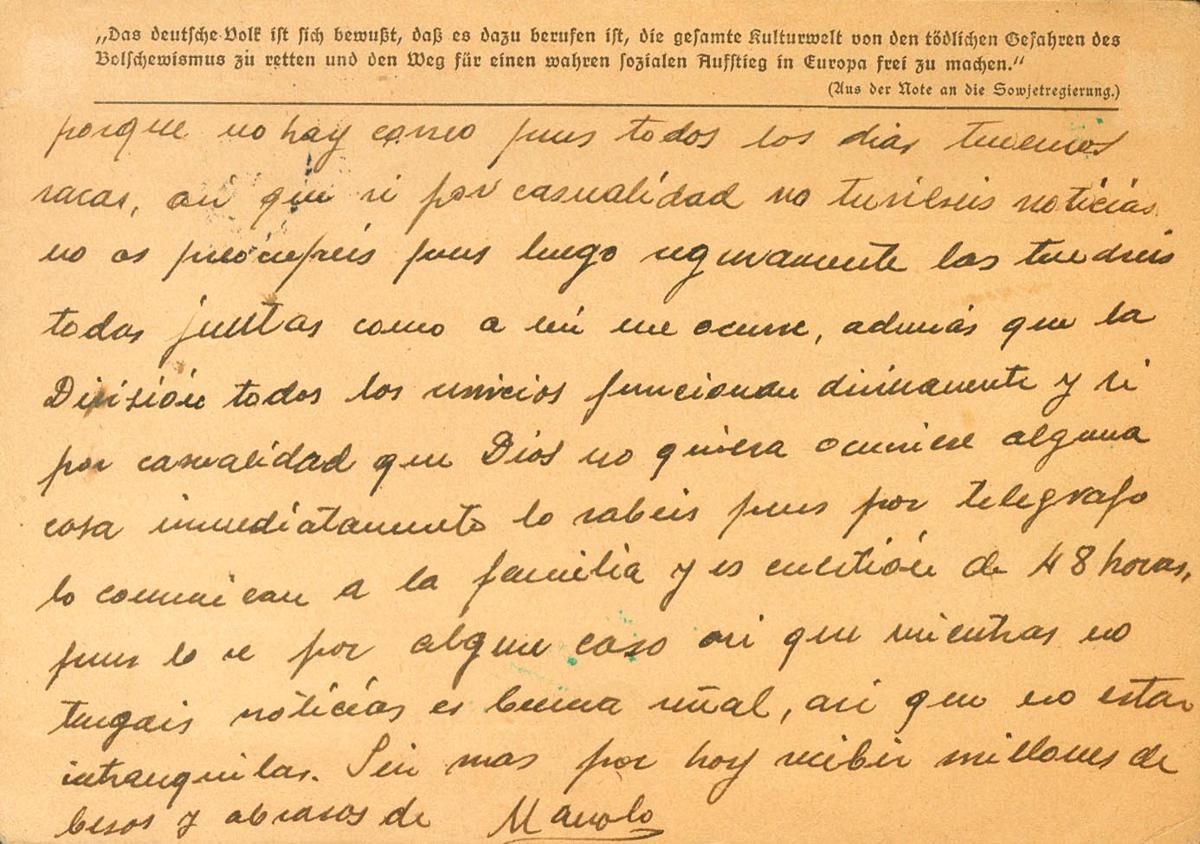 „Das deutsche Volk ist sich bewußt, daß es dazu berufen ist, die gesamte Kulturwelt von den tödlichen Gefahren des
Bolschewismus zu retten und den Weg für einen wahren sozialen Aufstieg in Europa frei zu machen.“
(Aus der Note an die Sowjetregierung.)
porque no hay correo pues todos los dias tenemos
sacas, asi que si por casualidad no tuvieseis noticias
no os preócupeis pues luego seguramente las tendreis
todas juntas como a mi me ocurre, además que la
División todos los servicios funcionan divinamente y si
por casualidad que Dios no quiera ocurriese alguna
cosa inmediatamente lo sabeis pues por telegrafo
lo comunican a la familia y es cuestión de 48 horas,
pues lo se por algun caso asi que mientras no
tengais noticias es buena señal, asi que no estar
intranquilas. Sin mas por hoy recibir millones de
besos y abrasos de Manolo